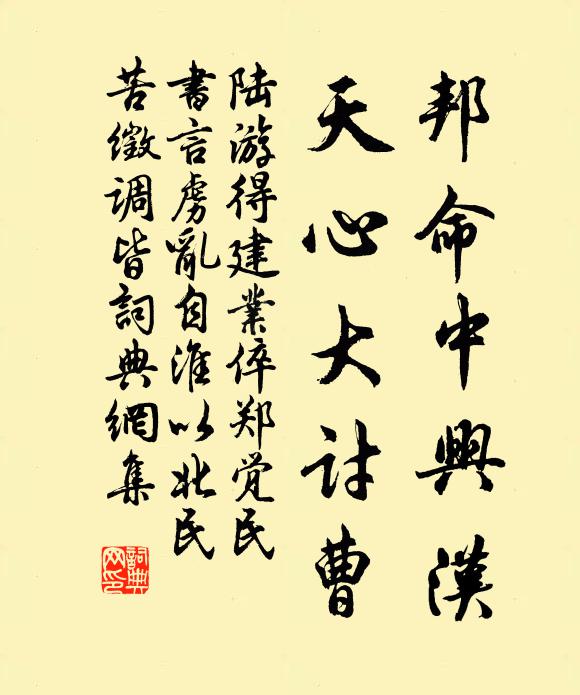 邦命中興漢
天心大討曹
陆游得建業倅郑觉民
書言虜亂自淮以北民
苦徵调皆詞典網集
詞典
网印